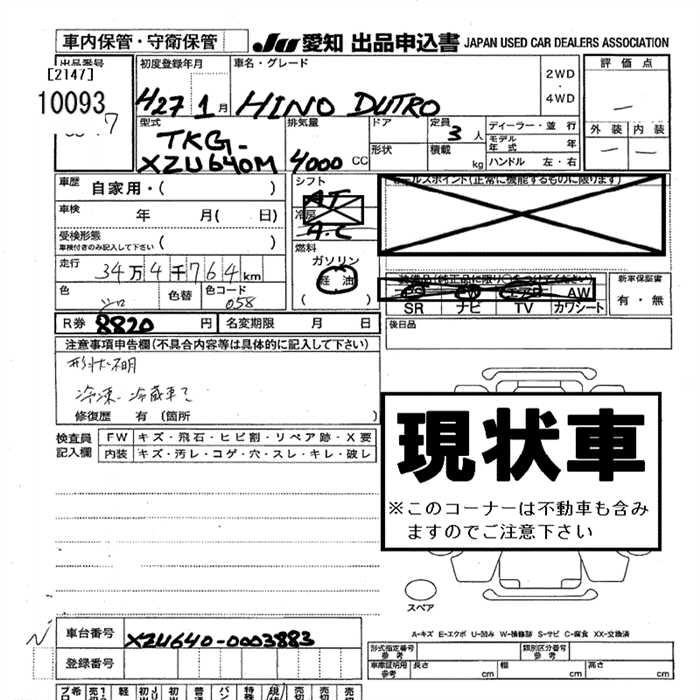 車内保管・守衛保管
JU 愛知 出品申込書 JAPAN USED CAR DEALERS ASSOCIATION
出品番号
[2147]
10093
初度登録年月
H27 1月
車名・グレード
HINO DUTRO
2WD
・
4WD
評価点
外装 内装
型式
TKG-
XZU640M
排気量
4000 CC
ドア
形状
定員
3人
積載
kg
ディーラー・並行
モデル
年式 年
ハンドル 左・右
車歴 自家用・( )
車検 年 月( 日)
受検形態
車検付きのみ記入して下さい ( )
走行 34万4千764km
色 シロ
色替
色コード
058
シフト
AT
冷房
A.C
燃料
ガソリン
軽油
( )
セールスポイント(正常に機能するものに限ります)
SR ナビ TV AW カワシート
新車保証書
有・無
後日品
R券 8820円
名変期限 月 日
注意事項申告欄(不具合内容等は具体的に記入して下さい)
形状不明
冷凍、冷蔵車
修復歴 有(箇所 )
検査員
記入欄
FW キズ・飛石・ヒビ割・リペア跡・X要
内装 キズ・汚レ・コゲ・穴・スレ・キレ・破レ
現状車
※このコーナーは不動車も含み
ますのでご注意下さい
スペア
A-キズ E-エクボ U-凹み W-補修跡 S-サビ C-腐食 XX-交換済
車台番号 XZU640-0003883
登録番号
形式指定番号
参考
類別区分番号
参考
車庫証明用
参考
長さ cm 幅 cm 高さ cm